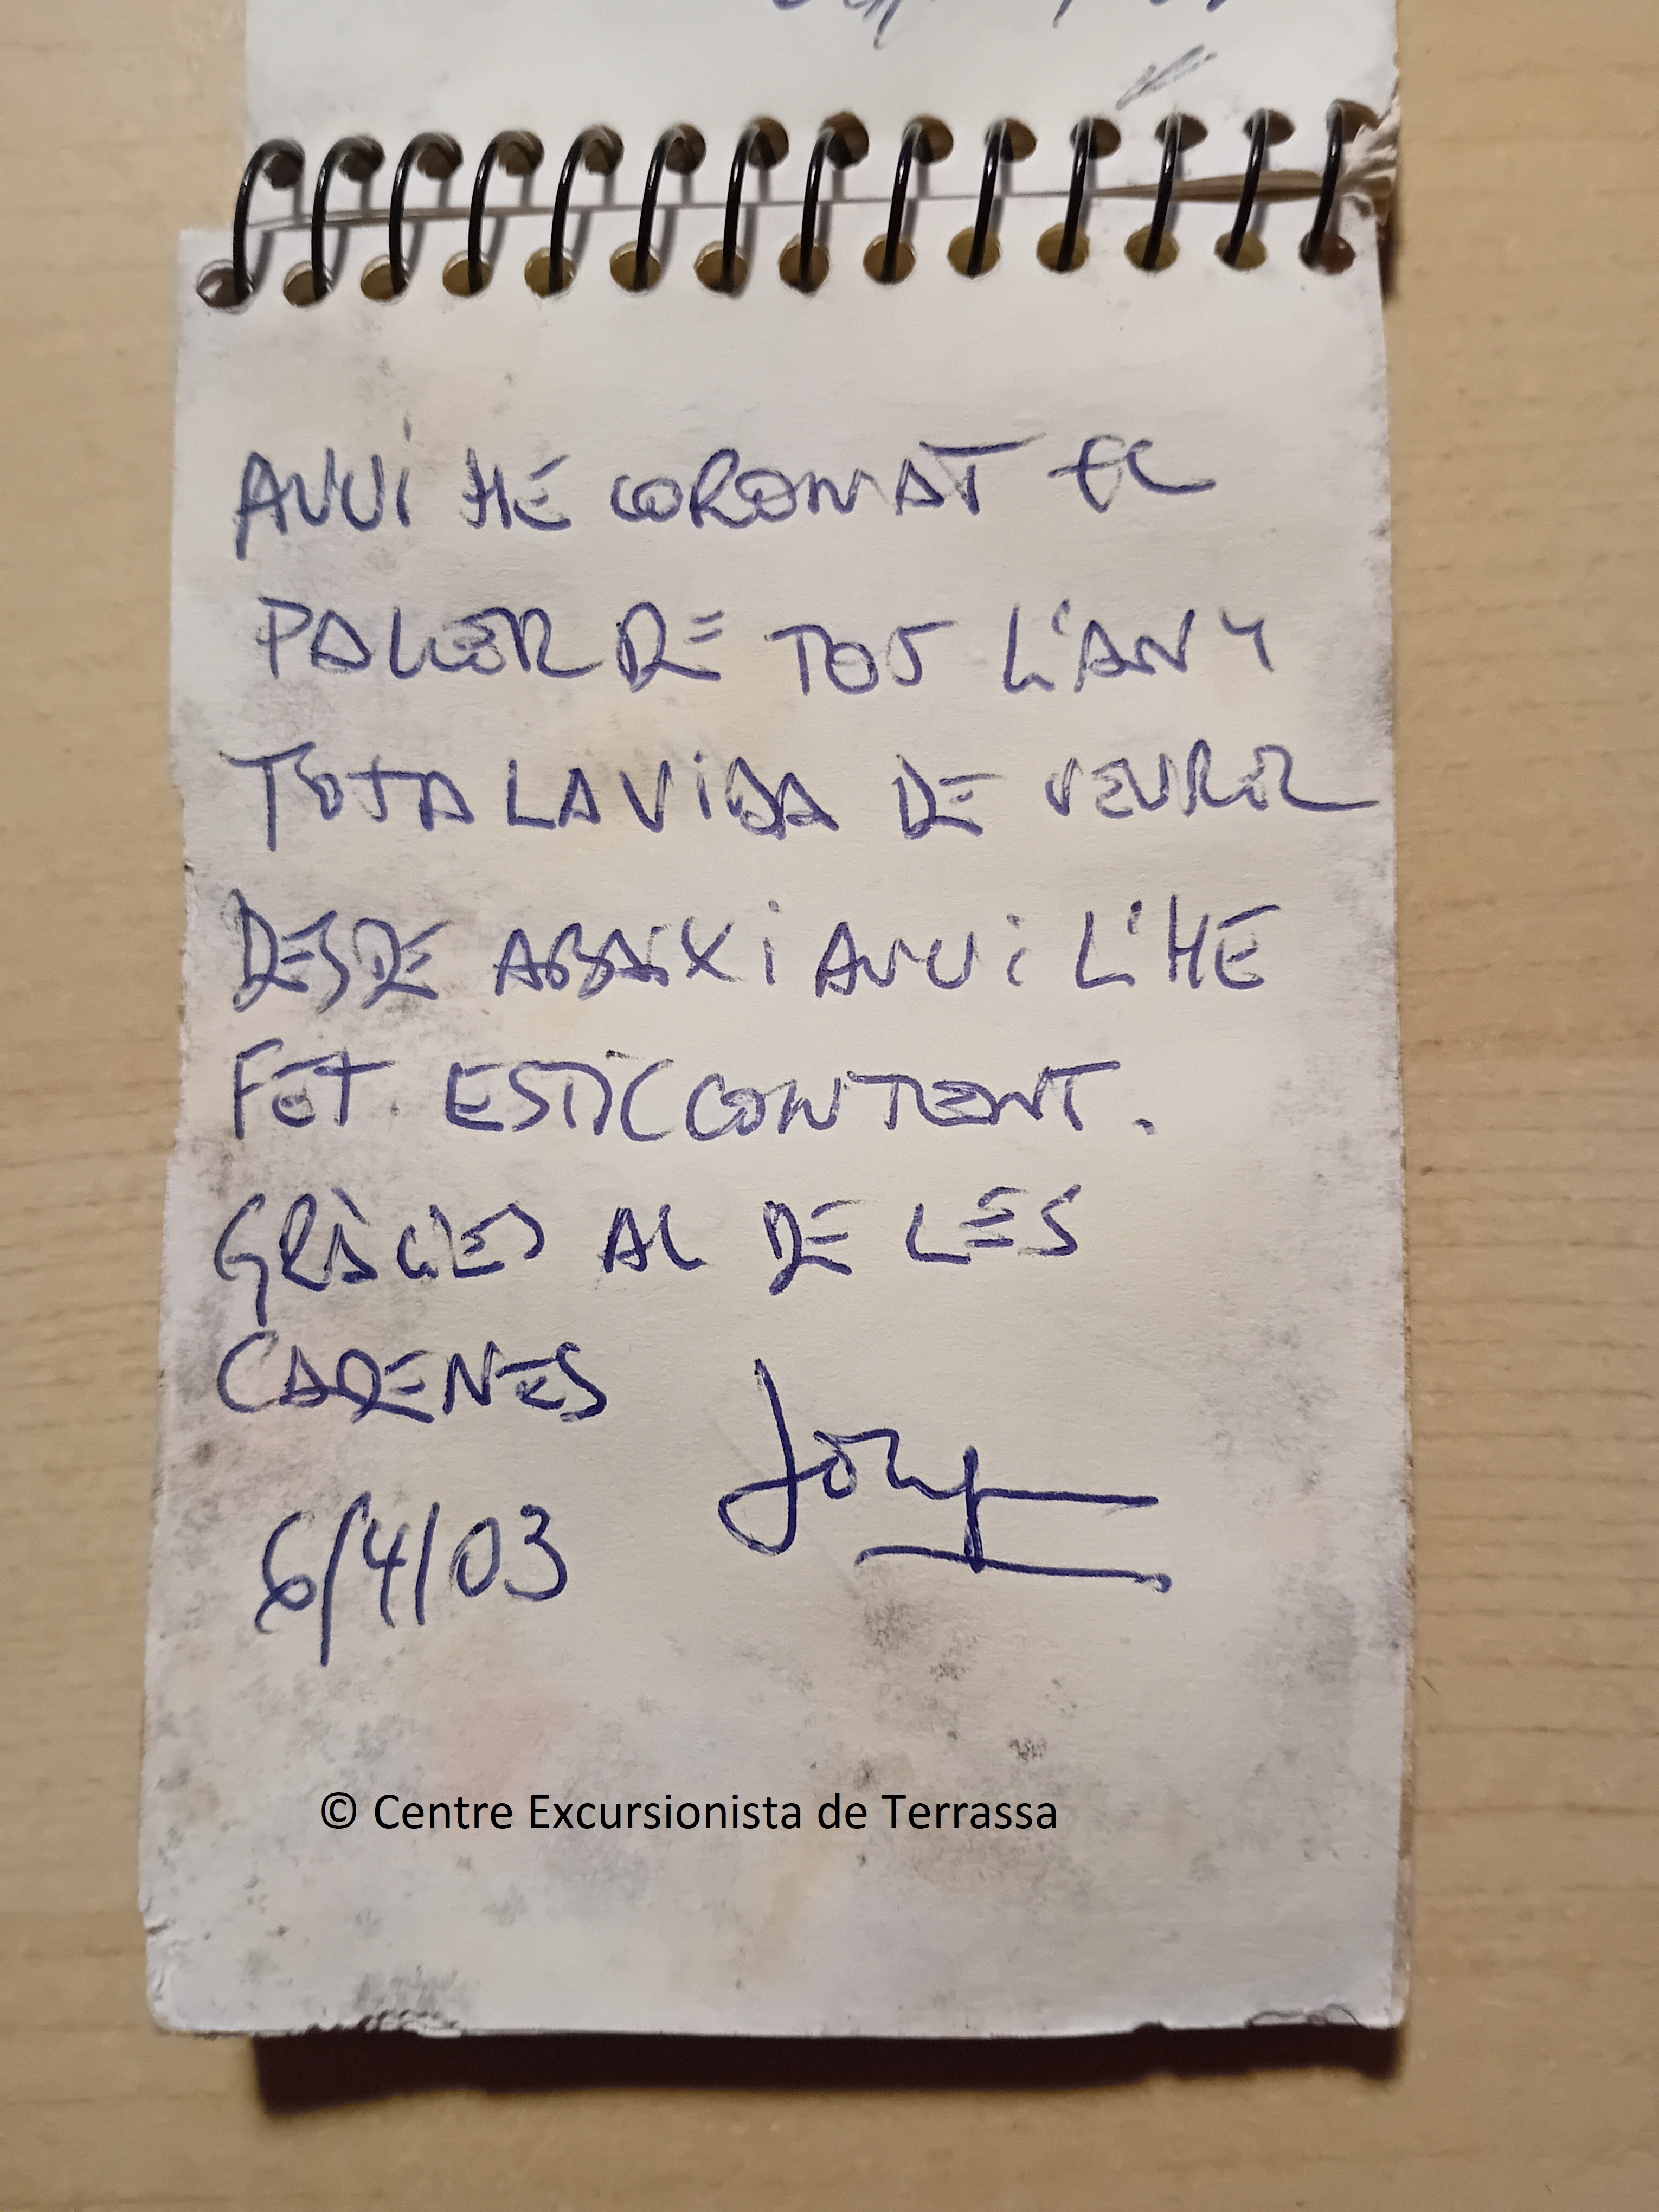 AVUI HE CORONAT EL
PALLER DE TOT L'ANY
TOTA LA VIDA DE VEURER
DESDE ABAIX I AVUI L'HE
FET. ESTIC CONTENT.
GRÀCIES AL DE LES
CADENES
Josep
6/4/03
© Centre Excursionista de Terrassa